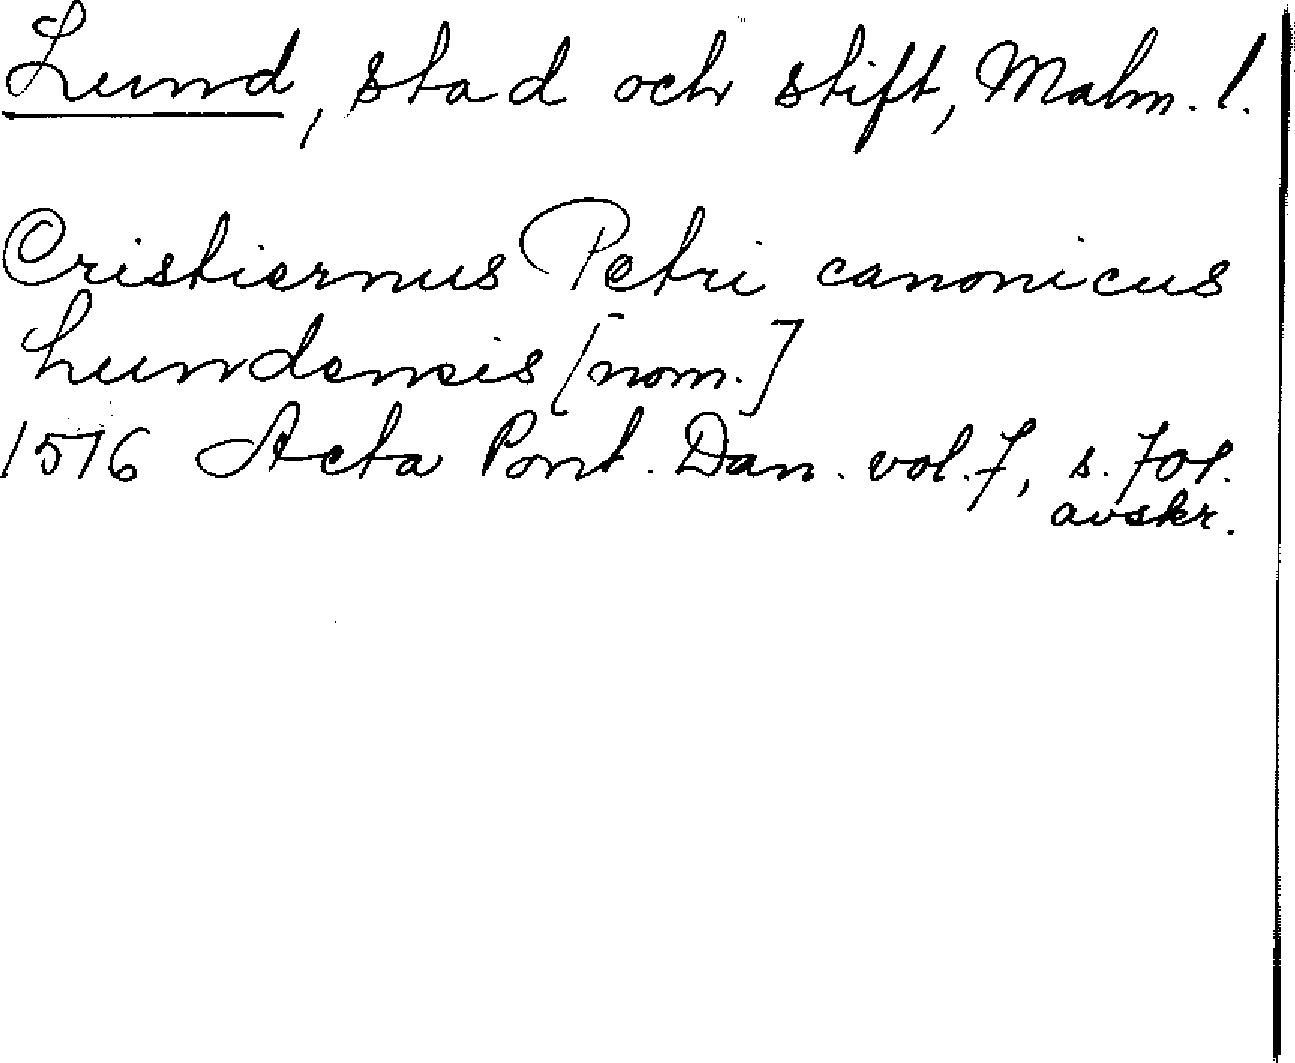 Lund, stad och stift, Malm. l.
Cristiernus Petri canonicus
Lundensis [nom.]
1516 Acta Pont. Dan. vol. 7, s. 701.
avskr.